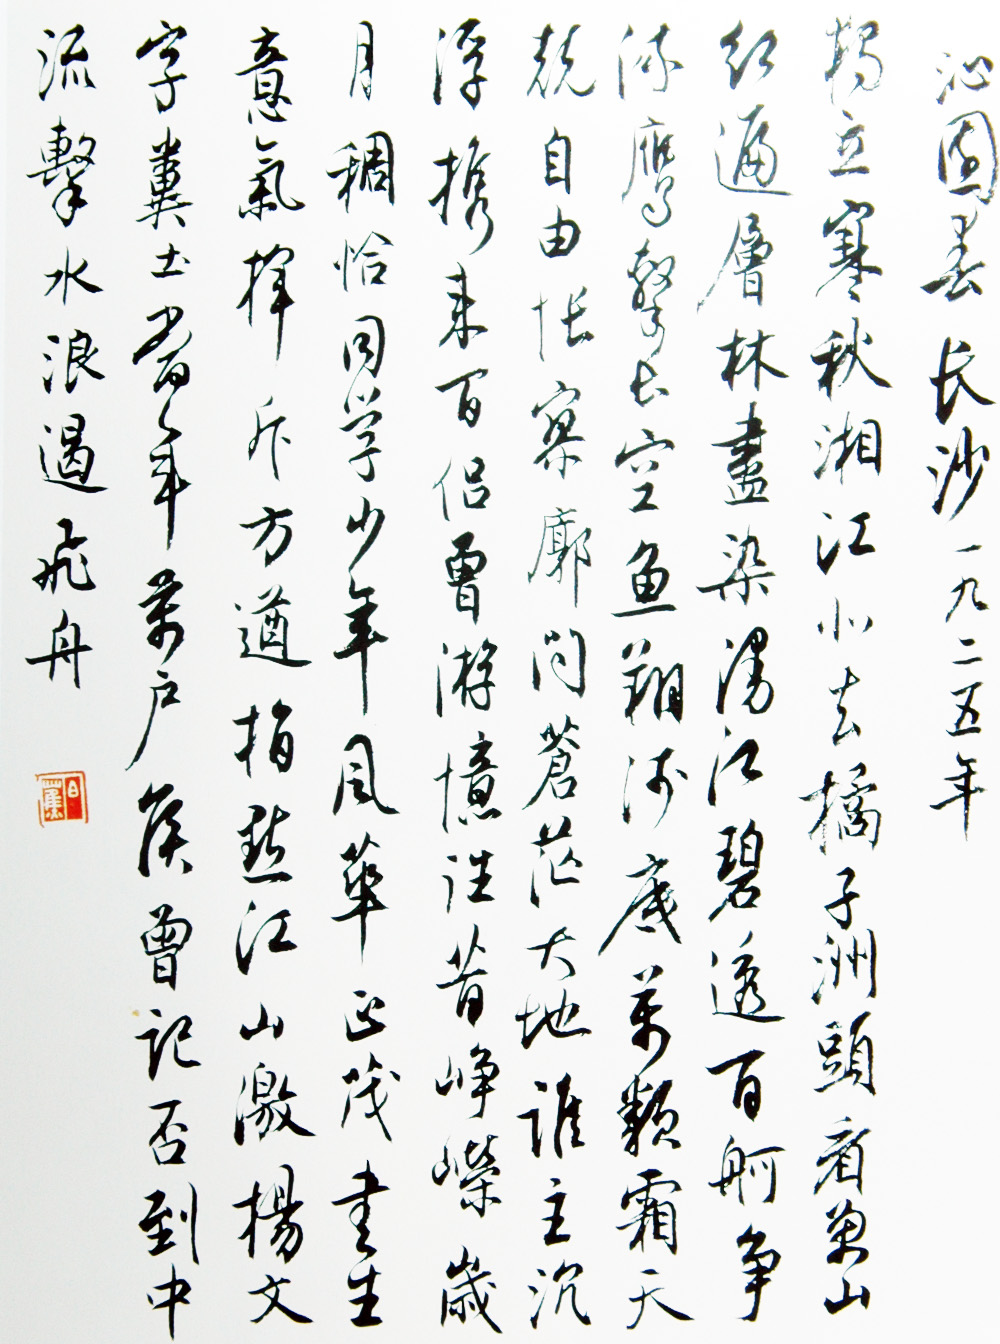 沁園春 长沙 一九二五年
獨立寒秋湘江北去橘子洲頭看萬山
红遍層林盡染漫江碧透百舸争
流鹰擊长空鱼翔浅底萬類霜天
竞自由怅寥廓问蒼茫大地誰主沉
浮携来百侣曾游憶往昔峥嶸歲
月稠恰同学少年风華正茂書生
意氣揮斥方遒指點江山激揚文
字糞土當年萬户侯曾記否到中
流擊水浪遏飛舟